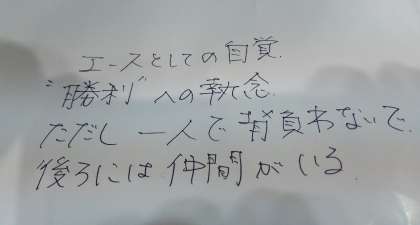 エースとしての自覚.
“勝利”への執念.
ただし 一人で背負わないで.
後ろには仲間がいる.